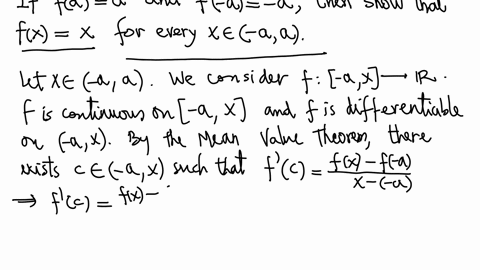 If f(a)=a and f(-a)=-a, then show that
f(x) = x for every x∈(-a,a).
Let x∈(-a,a). We consider f:[-a,x]→ℝ.
f is continuous on [-a, x] and f is differentiable
on (-a,x). By the Mean Value Theorem, there
exists c∈(-a,x) such that f'(c) = \frac{f(x)-f(-a)}{x-(-a)}
⇒ f'(c) = f(x)-